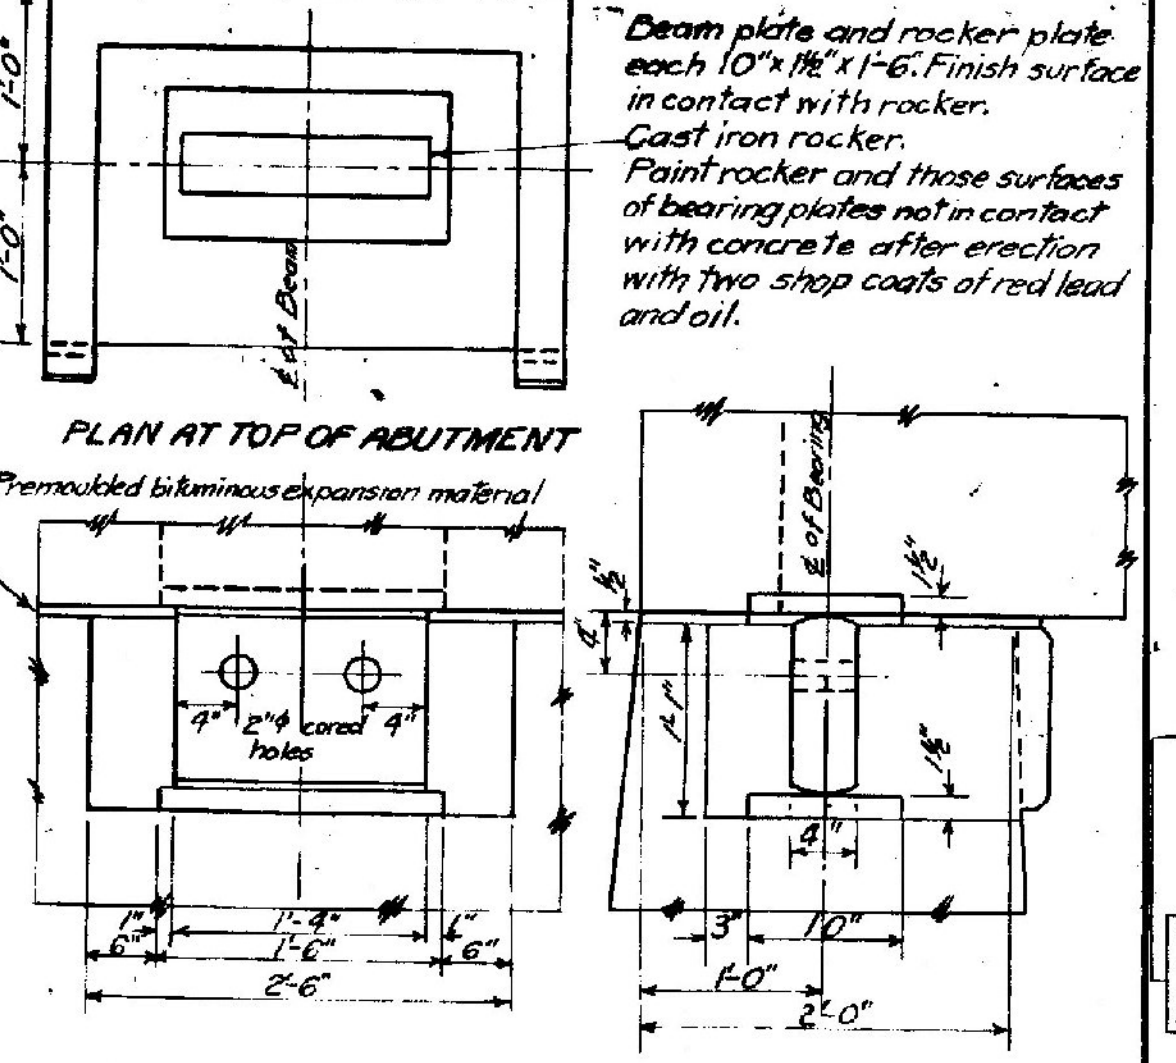 Beam plate and rocker plate
each 10"x1½"x1'-6". Finish surface
in contact with rocker.
Cast iron rocker.
Paint rocker and those surfaces
of bearing plates not in contact
with concrete after erection
with two shop coats of red lead
and oil.
1'-0"
1'-0"
℄ of Beam
PLAN AT TOP OF ABUTMENT
Premoulded bituminous expansion material
4" 2"φ cored 4"
holes
1" 1'-4" 1"
6" 1'-6" 6"
2'-6"
℄ of Bearing
½"
1½"
4"
1'-1"
1½"
4"
3" 10"
1'-0"
2'-0"